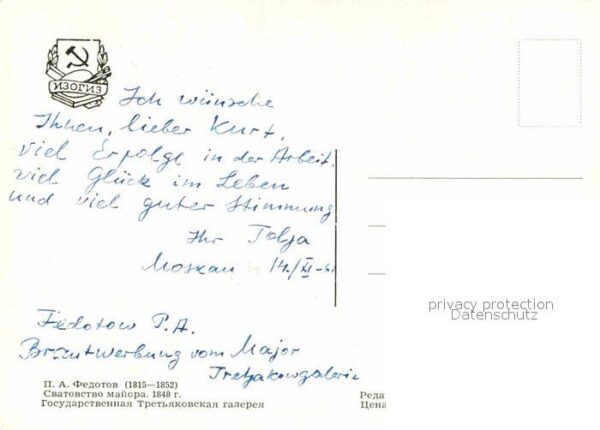 ИЗОГИЗ
Ich wünsche
Ihnen, lieber Kurt,
viel Erfolge in der Arbeit,
viel Glück im Leben
und viel guter Stimmung
Ihr Tolja
Moskau 14./XI-61
Fedotow P.A.
Brautwerbung vom Major
Tretjakowgalerie
П. А. Федотов (1815—1852)
Сватовство майора. 1848 г.
Государственная Третьяковская галерея
privacy protection
Datenschutz
Реда
Цена